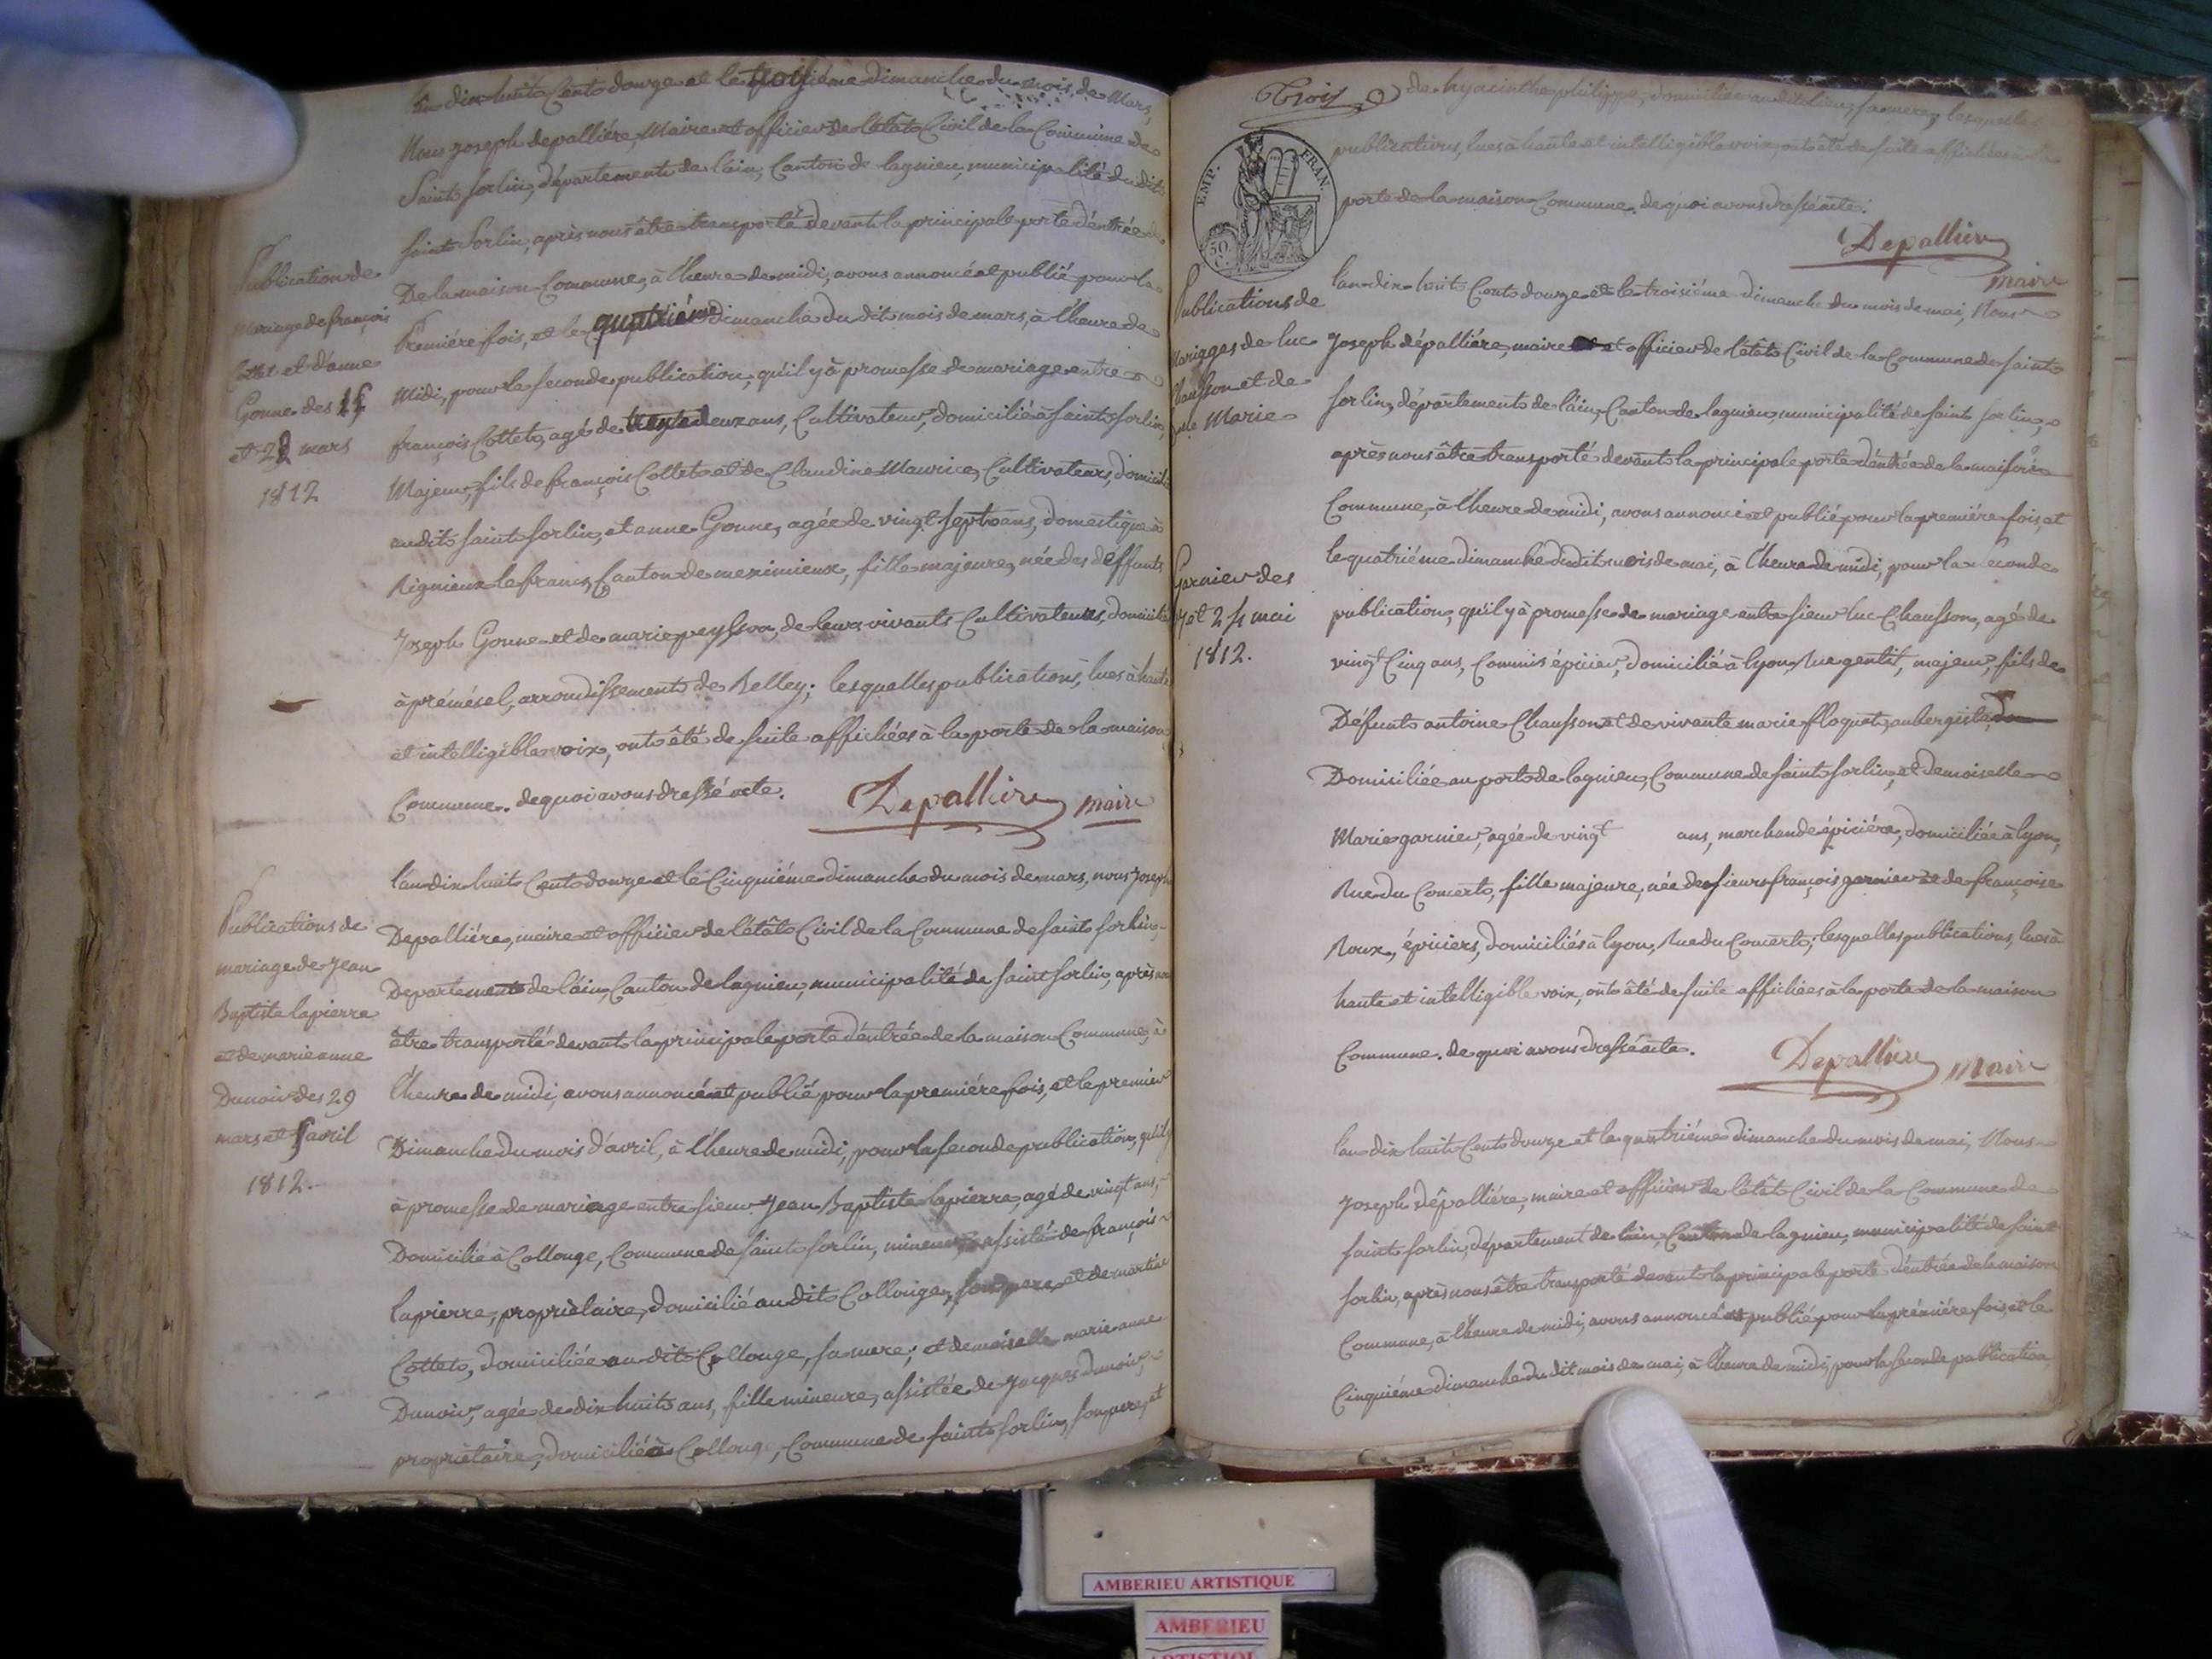 Lan dix huit Cent douze et le troisiéme dimanche du mois de Mars,
Nous joseph depalliére, Maire et officier de l'état Civil de la Commune de
Saint sorlin, département de l'ain, Canton de lagnieu, municipalité du dit
saint Sorlin, après nous être transporté devant la principale porte d'éntrée
De la maison Commune, à l'heure de midi, avons annoncé et publié pour la
Premiére fois, et le quatriéme dimanche du dit mois de mars, à l'heure de
Midi, pour la seconde publication, qu'il y à promesse de mariage entre
françois Cottet, agé de trente deux ans, Cultivateur, domicilié à saint sorlin,
Majeur, fils de françois Cottet et de Claudine Maurice, Cultivateurs, domiciliés
audit saint sorlin, et anne Gonne, agée de vingt sept ans, domestique à
Rignieux le franc, Canton de meximieux, fille majeure, née des deffunts
Joseph Gonne et de marie peysson, de leur vivants Cultivateurs, domiciliés
à prémésel, arrondissement de Belley; lesquelles publications, lues à haute
et intelligible voix, ont été de suite affichées à la porte de la maison
Commune. de quoi avons dressé acte. Depalliere maire
Publication de
Mariage de françois
Cottet et d'anne
Gonne des 15
et 22 mars
1812
l'an dix huit Cent douze et le Cinquiéme dimanche du mois de mars, nous joseph
Depalliére, maire et officier de l'état Civil de la Commune de saint sorlin,
Departement de l'ain, Canton de lagnieu, municipalité de saint sorlin, après nous
être transporté devant la principale porte d'éntrée de la maison Commune, à
l'heure de midi, avons annoncé et publié pour la premiére fois, et le premier
Dimanche du mois d'avril, à l'heure de midi, pour la seconde publication, qu'il y
à promesse de mariage entre sieur Jean Baptiste lapierre, agé de vingt ans,
Domicilié à Collonge, Commune de saint sorlin, mineur, assisté de françois
lapierre, propriétaire, domicilié au dit Collonge, son pere, et de martine
Cottet, domiciliée au dit Collonge, sa mere; et demoiselle marie anne
Dunoir, agée de dix huit ans, fille mineure, assistée de jacques dunoir,
propriétaire, domicilié à Collonge, Commune de saint sorlin, son pere, et
Publications de
mariage de jean
Baptiste lapierre
et de marie anne
Dunoir des 29
mars et 5 avril
1812.
Trois
de hyacinthe philippe, domiciliée au dit lieu, sa mere; lesquelles
publications, lues à haute et intelligible voix, ont été de suite affichées à la
porte de la maison Commune. de quoi avons dressé acte.
EMP. FRAN.
50 C.
Depalliere
maire
l'an dix huit Cent douze et le troisiéme dimanche du mois de mai, Nous
Joseph dépalliére, maire et officier de l'état Civil de la Commune de saint
sorlin, département de l'ain, Canton de lagnieu, municipalité de saint sorlin,
après nous être transporté devant la principale porte d'éntrée de la maison
Commune, à l'heure de midi, avons annoncé et publié pour la premiére fois, et
le quatriéme dimanche du dit mois de mai, à l'heure de midi, pour la seconde
publication, qu'il y à promesse de mariage entre sieur luc Chausson, agé de
vingt Cinq ans, Commis épicier, domicilié à lyon, Rue gentil, majeur, fils de
Défunt antoine Chausson et de vivante marie floquet, aubergiste,
Domiciliée au port de lagnieu, Commune de saint sorlin, et demoiselle
Marie garnier, agée de vingt ans, marchande épiciére, domiciliée à lyon,
Rue du Concert, fille majeure, née de sieur françois garnier et de françoise
Roux, épiciers, domiciliés à lyon, Rue du Concert; lesquelles publications, lues à
haute et intelligible voix, ont été de suite affichées à la porte de la maison
Commune. de quoi avons dressé acte. Depalliere Maire
Publications de
Mariages de luc
Chausson et de
Marie
Garnier des
et 24 mai
1812.
l'an dix huit Cent douze et le quatriéme dimanche du mois de mai, Nous
Joseph dépalliére, maire et officier de l'état Civil de la Commune de
saint sorlin, département de l'ain, Canton de lagnieu, municipalité de saint
sorlin, après nous être transporté devant la principale porte d'éntrée de la maison
Commune, à l'heure de midi, avons annoncé et publié pour la premiére fois, et le
Cinquiéme dimanche du dit mois de mai, à l'heure de midi, pour la seconde publication,
AMBERIEU ARTISTIQUE
AMBERIEU
ARTISTIQUE